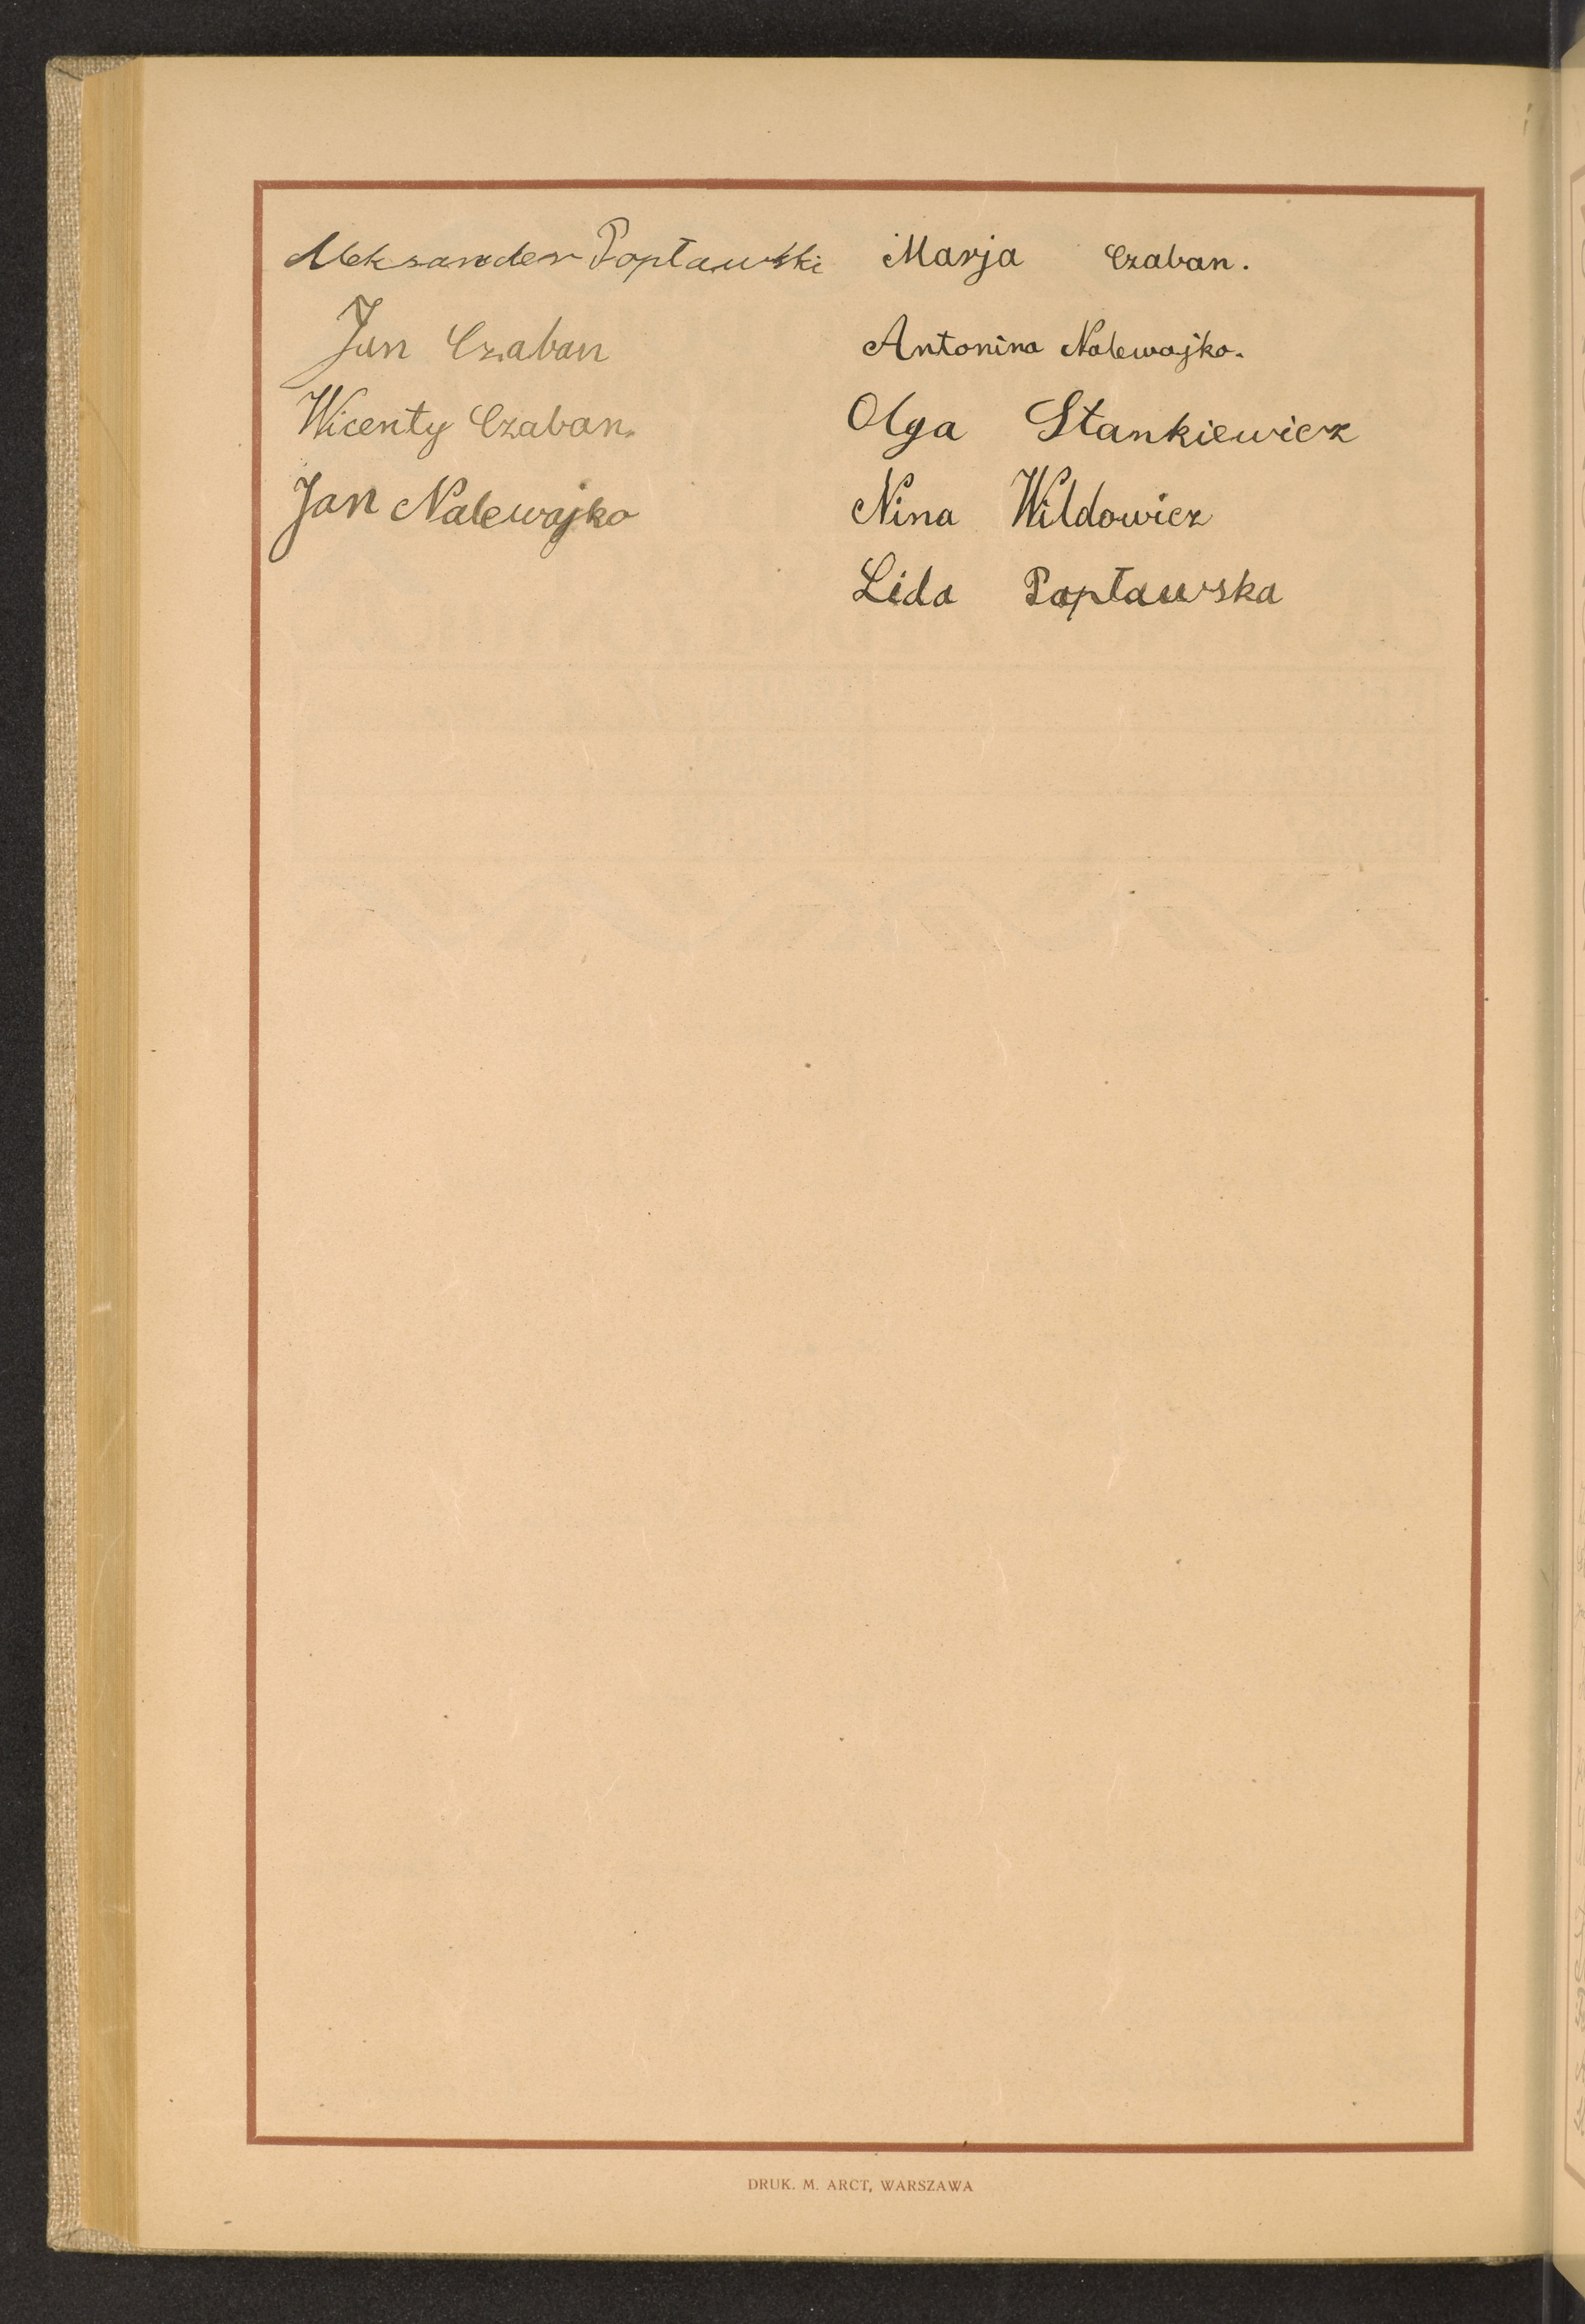 Aleksander Popławski
Jan Czaban
Wicenty Czaban.
Jan Nalewajko
Marja Czaban.
Antonina Nalewajko.
Olga Stankiewicz
Nina Wildowicz
Lida Popławska
DRUK. M. ARCT, WARSZAWA